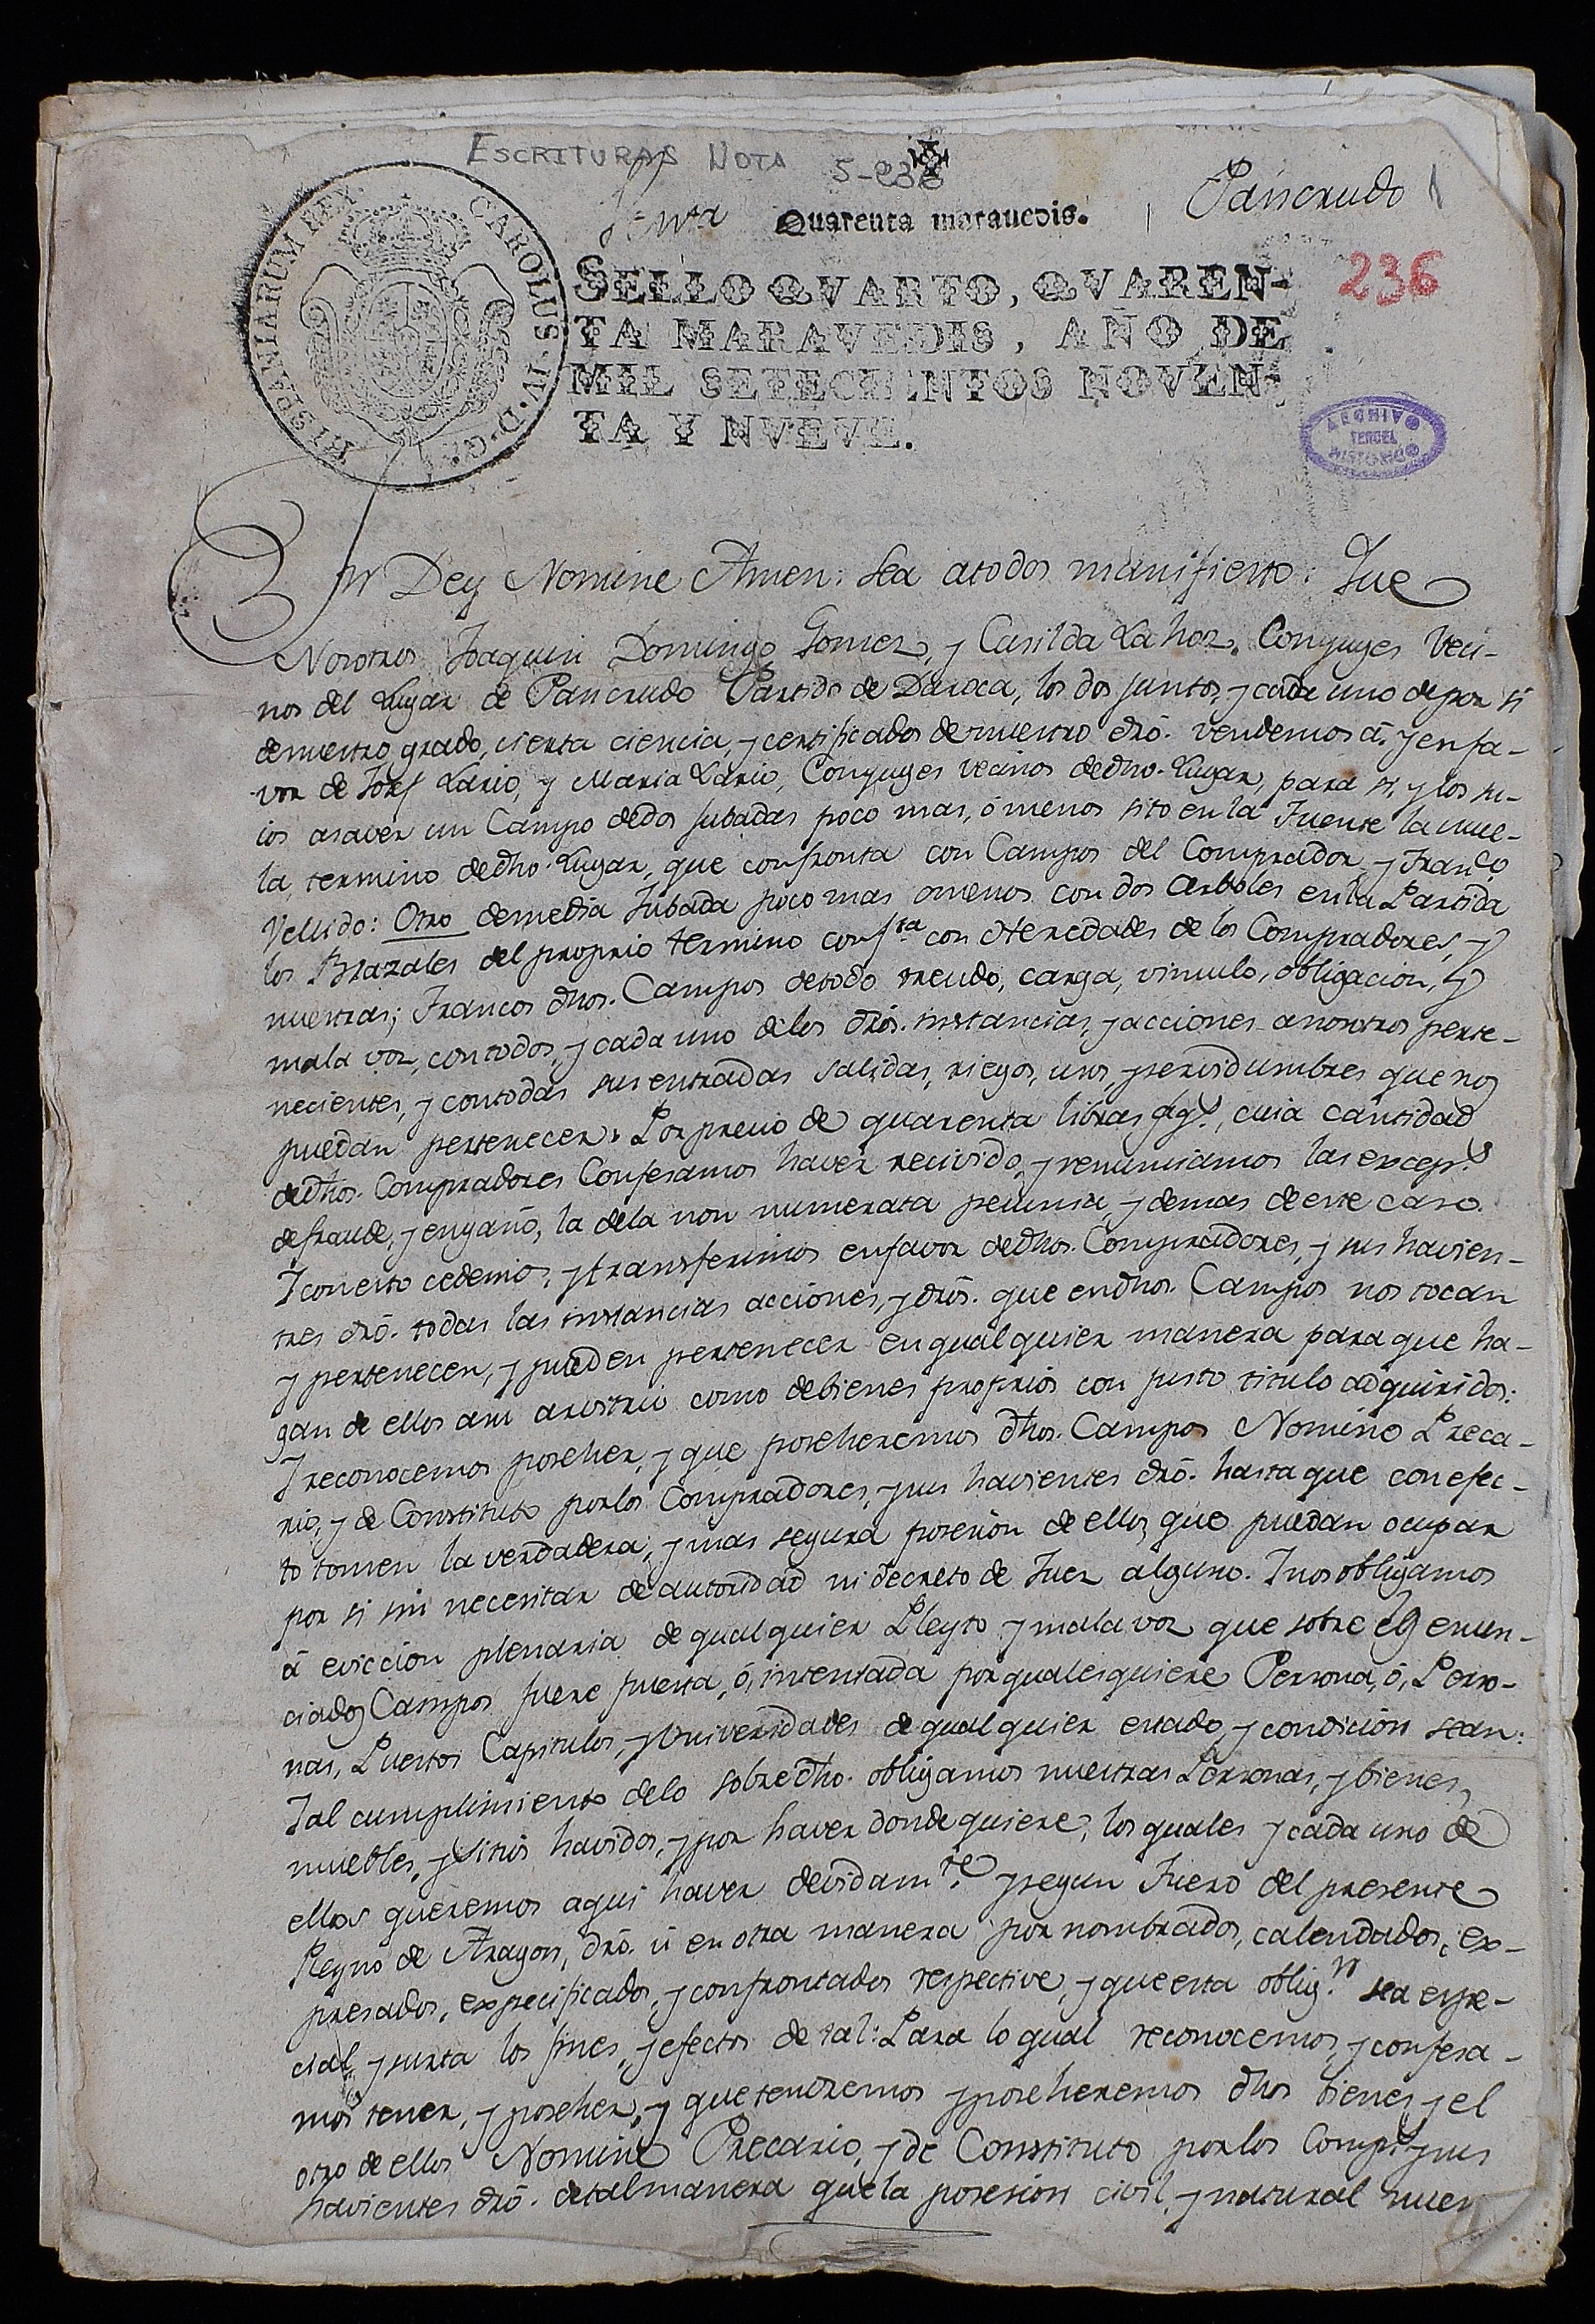 ESCRITURAS NOTA 5-236
Quarenta maravedis.
Pancrudo
1
236
HISPANIARUM REX CAROLUS·IV·D·G·
SELLO QVARTO, QVAREN-
TA MARAVEDIS, AÑO DE
MIL SETECIENTOS NOVEN-
TA Y NVEVE.
ARCHIVO
TERUEL
HISTORICO
In Dey Nomine Amen: Sea atodos manifiesto: Que
Nosotros Joaquin Domingo Gomez, y Casilda Lahoz, Conyuges Veci-
nos del Lugar de Pancrudo Partido de Daroca, los dos juntos, y cada uno depor si
denuestro grado, cierta ciencia, y certificados denuestro dró. vendemos á, y en fa-
vor de Josef Lario, y Maria Lario, Conyuges vecinos dedho. Lugar, para si, y los su-
ios asaver un Campo dedos jubadas poco mas, ó menos sito en la Fuente la mue-
la, termino dedho. Lugar, que confronta con Campos del Comprador, y Franco
Vellido: Otro demedia Jubada poco mas omenos con dos Arboles en la Partida
los Brazales del proprio termino confta con Heredades de los Compradores, y
nuestras; Francos dhos. Campos detodo treudo, carga, vinculo, obligacion, y
mala voz, contodos, y cada uno delos drós. instancias, y acciones anosotros perte-
necientes, y contodas sus entradas salidas, riegos, usos, y servidumbres que nos
puedan pertenecer. Por precio de quarenta libras jaqs, cuia cantidad
dedhos. Compradores Confesamos haver recivido, y renunciamos las exceps
defraude, y engaño, la dela non numerata pecunia, y demas deeste caso.
Y conesto cedemos, y transferimos enfavor dedhos. Compradores, y sus havien-
tres dró. todas las instancias acciones, y drós. que endhos. Campos nos tocan
y pertenecen, y pueden pertenecer enqualquier manera para que ha-
gan de ellos asu arvitrio como debienes proprios con justo titulo adquiridos:
Y reconocemos posehér, y que posehéremos dhos. Campos Nomine Preca-
rio, y de Constituto porlos Compradores, y sus havientes dró. hasta que con efec-
to tomen la verdadera, y mas segura posesion de ellos, que puedan ocupar
por si sin necesitar de autoridad ni decreto de Juez alguno. Y nos obligamos
á eviccion plenaria de qualquier Pleyto y mala voz que sobre los enun-
ciados Campos fuere puesta, ó, intentada por qualesquiere Persona, ó, Perso-
nas, Puestos Capitulos, y Universidades de qualquier estado, y condicion sean:
Y al cumplimiento delo sobredho. obligamos nuestras Personas, y bienes,
muebles, y sitios havidos, y por haver donde quiere, los quales y cada uno de
ellos queremos aqui haver devidamte. y segun Fuero del presente
Reyno de Aragon, dró. ú en otra manera por nombrados, calendados, ex-
presados, expecificados, y confrontados respective, y que esta oblign. sea espe-
cial, y surta los fines, y efectos de tal: Para lo qual reconocemos, y confesa-
mos tener, y posehér, y que tendremos y posehéremos dhos bienes, y el
otro de ellos Nomine Precario, y de Constituto porlos Comps. y sus
havientes dró. detalmanera que la posesion civil, y natural nues